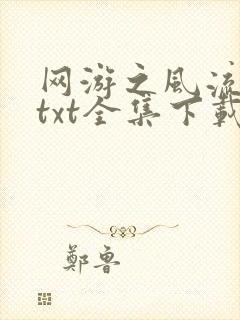 网游之风流
txt全集下载
鄭鲁